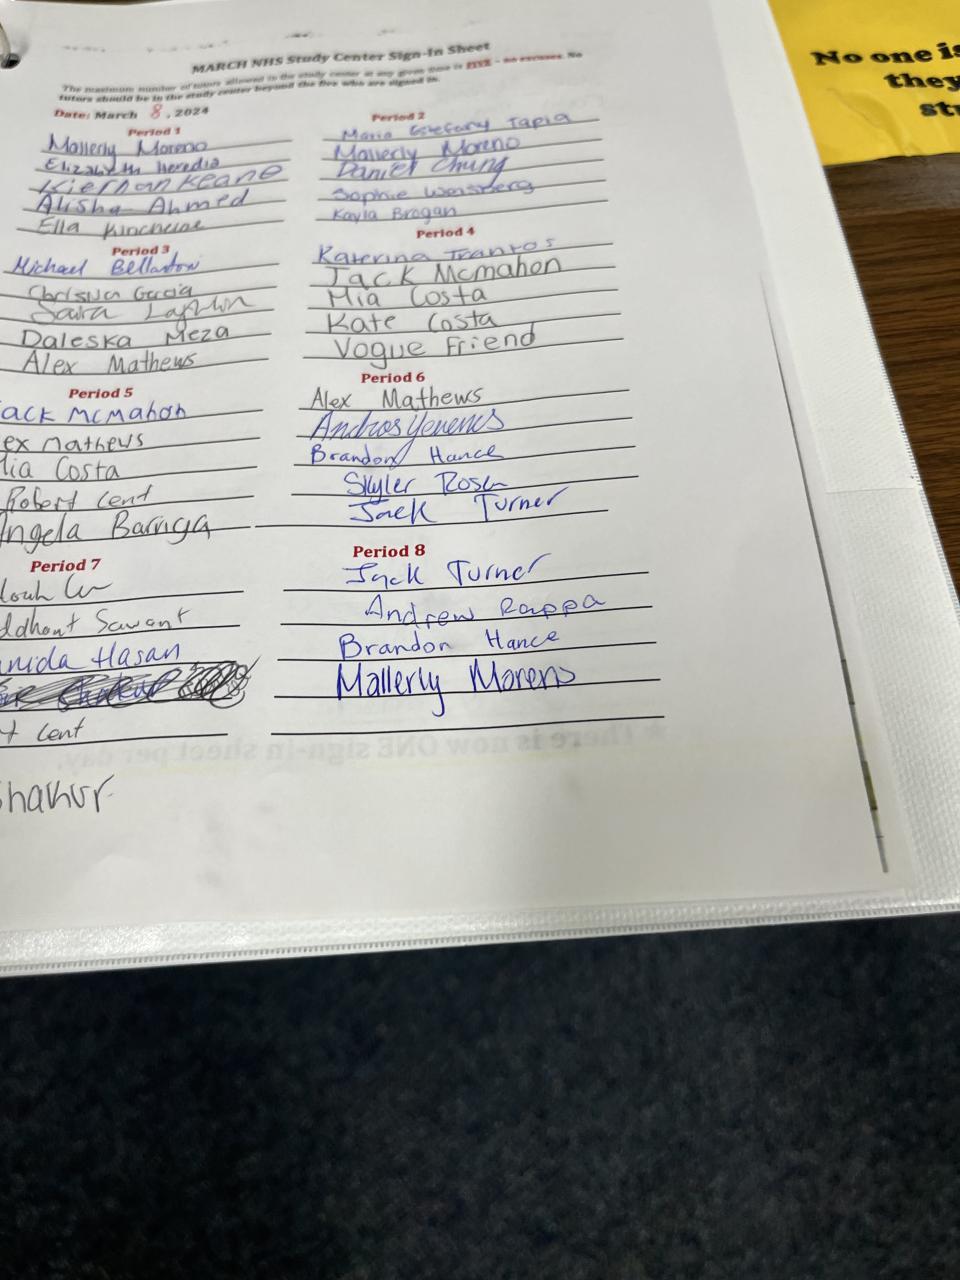 MARCH NHS Study Center Sign-In Sheet
The maximum number of tutors allowed in the study center at any given time is FIVE - no excuses. No
tutors should be in the study center beyond the five who are signed in.
Date: March 8, 2024
Period 1
Mallerly Moreno
Elizabeth heredia
Kiernan Keane
Alisha Ahmed
Ella
Period 2
Maria Tapia
Mallerly Moreno
Daniel Chung
Sophie Weisberg
Kayla Brogan
Period 3
Michael
Garcia
Saira
Daleska Meza
Alex Mathews
Period 4
Katerina Trantos
Jack Mcmahon
Mia Costa
Kate Costa
Vogue Friend
Period 5
ack McMahon
ex mathews
ia Costa
Robert Cent
Angela Barriga
Period 6
Alex Mathews
Andros
Brandon Hance
Skyler Rosen
Jack Turner
Period 7
ddhant Sawant
Hasan
t Cent
Shakur
Period 8
Jack Turner
Andrew Rappa
Brandon Hance
Mallerly Moreno
There is now ONE sign-in sheet per day.
No one is
they
st